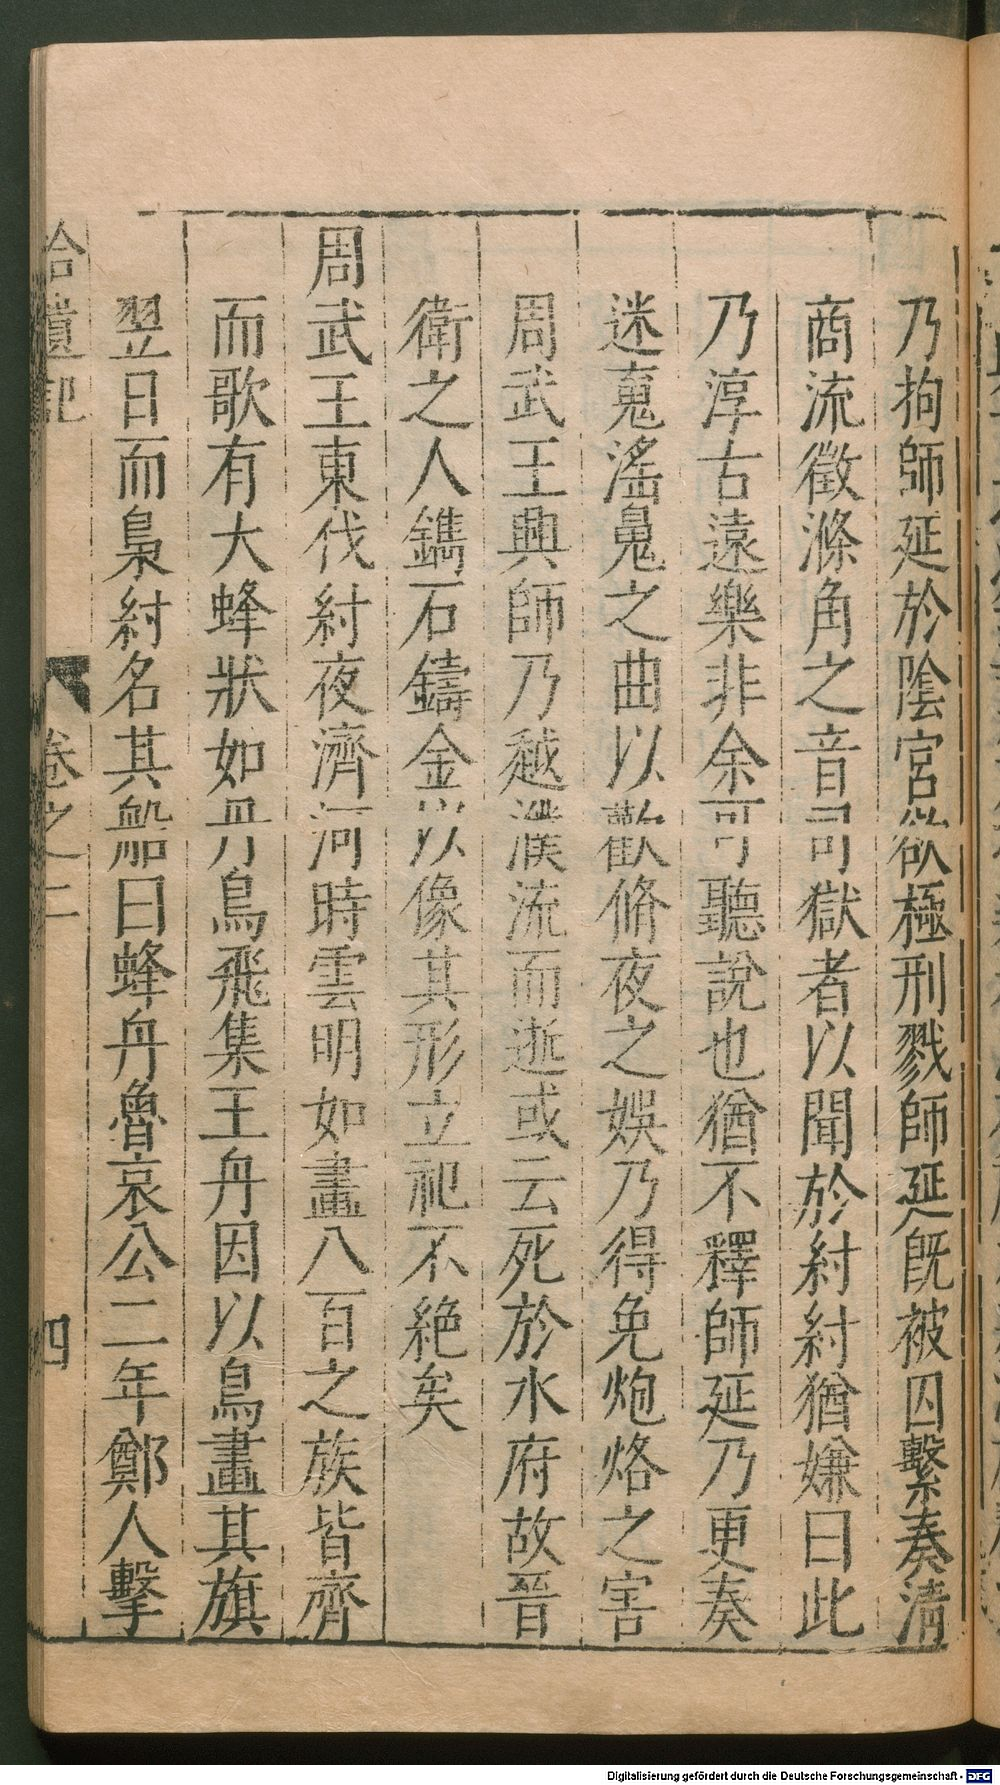 乃拘師延於陰宮欲極刑戮師延旣被囚繫奏清
商流徵滌角之音司獄者以聞於紂紂猶嫌曰此
乃淳古遠樂非余可聽說也猶不釋師延乃更奏
迷䰟滛䰟之曲以歡脩夜之娛乃得免炮烙之害
周武王興師乃越濮流而逝或云死於水府故晉
衛之人鐫石鑄金以像其形立祀不絶矣
周武王東伐紂夜濟河時雲明如晝八百之族皆齊
而歌有大蜂狀如丹鳥飛集王舟因以鳥畫其旗
翌日而梟紂名其船曰蜂舟魯哀公二年鄭人擊
拾遺記 卷之二 四
Digitalisierung gefördert durch die Deutsche Forschungsgemeinschaft - DFG